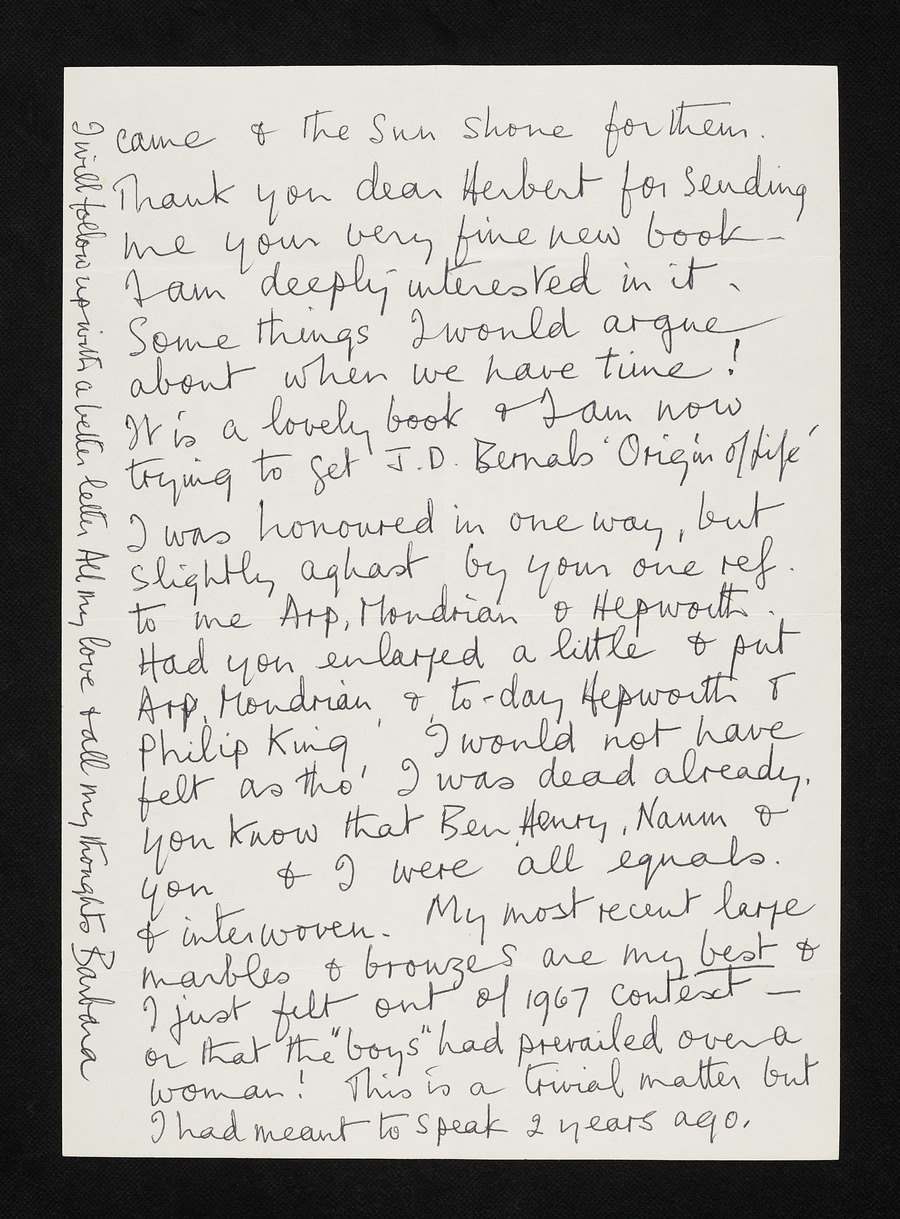 came & the Sun shone for them.
Thank you dear Herbert for sending
me your very fine new book —
I am deeply interested in it.
Some things I would argue
about when we have time!
It is a lovely book & I am now
trying to get J.D. Bernals 'Origin of Life'
I was honoured in one way, but
slightly aghast by your one ref.
to me Arp, Mondrian & Hepworth.
Had you enlarged a little & put
Arp, Mondrian, &, to-day Hepworth &
Philip King, I would not have
felt as tho' I was dead already.
You know that Ben Henry, Naum &
you & I were all equals.
& interwoven. My most recent large
marbles & bronzes are my best &
I just felt out of 1967 context —
or that the "boys" had prevailed over a
woman! This is a trivial matter but
I had meant to speak 2 years ago.
I will follow up with a better letter All my love & all my thoughts Barbara